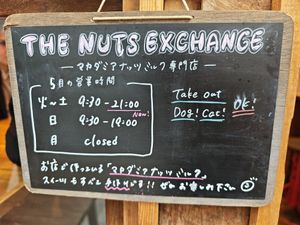 THE NUTS EXCHANGE
― マカダミアナッツミルク専門店 ―
5月の営業時間
火~土 9:30-21:00
New!
日 9:30-19:00
月 closed
Take out
Dog! Cat! OK!
お店で作っている「マカダミアナッツミルク」
スイーツもすべて手作りです!! ぜひお楽しみ下さい